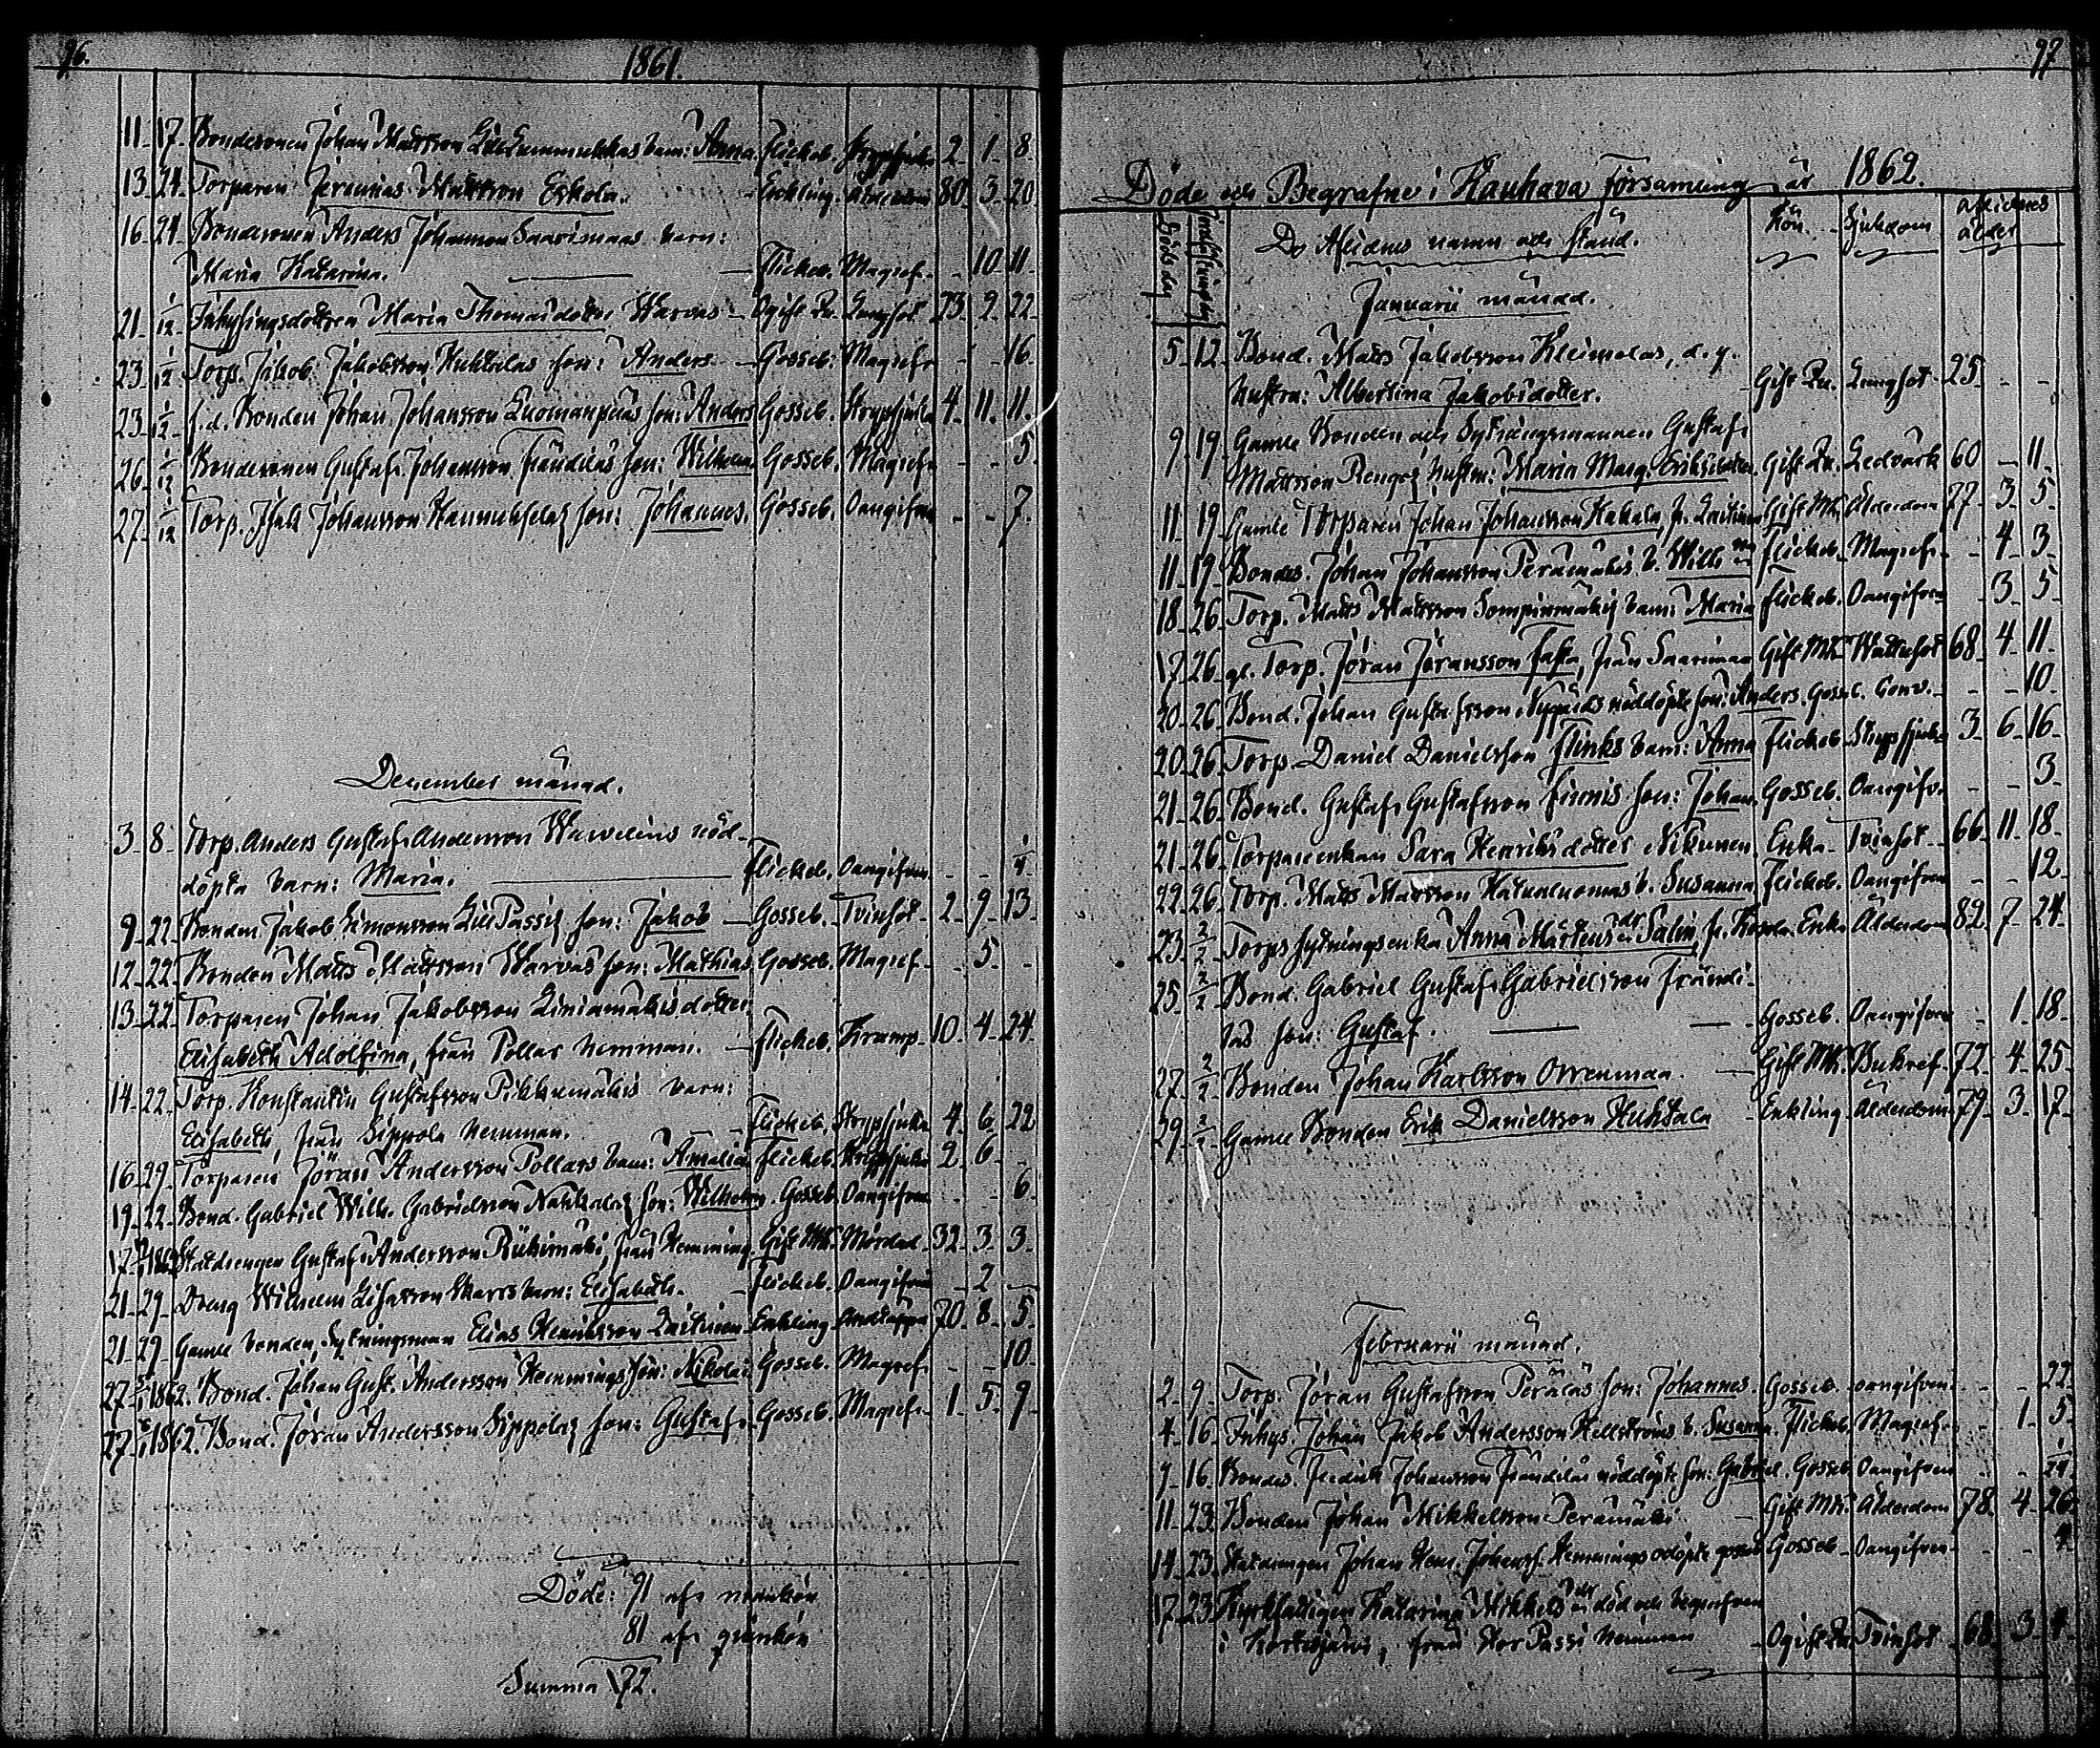 96.
1861.
11. 17. Bondesonen Johan Mattsson barn: Anna. Flickeb. Strypsjuka 2. 1. 8.
13. 24. Torparen Jeremias Mattsson Eskola. Enkling. Ålderdom 80. 3. 20
16. 24. Bondesonen Anders Johansson Saarimaas barn:
Maria Katarina. Flickeb. Magref. - 10. 11.
21. 1/12 Inhysingsdottren Maria Thomasdotter Warvas - Ogift Qu. Lungsot. 23. 2. 22.
23. 1/12 Torp. Jakob Jakobsson Huhtalas son: Anders. Gosseb. Magref. - - 16.
23. 1/12 f.d. Bonden Johan Johansson Luomanpääs son: Anders Gosseb. Strypsjuka 4. 11. 11.
26. 1/12 Bondesonen Gustaf Johansson Frändiläs son: Wilhelm. Gosseb. Magref. - - 5.
27. 1/12 Torp. Isak Johansson Hannukselas son: Johannes. Gosseb. Oangifven - - 7.
December månad.
3. 8. Torp. Anders Gustaf Andersson nöd-
döpta barn: Maria. Flickeb. Oangifven. - - 1/4
9. 22. Bonden Jakob Simonsson Lill Passis son: Jakob Gosseb. Tvinsot. 2. 9. 13.
12. 22. Bonden Matts Mattsson Warvas son: Mathias Gosseb. Magref. - 5. -
13. 22. Torparen Johan Jakobsson Liniamäkis dotter
Elisabeth Adolfina, från Pollar hemman. Flickeb. Kramp. 10. 4. 24.
14. 22. Torp. Konstantin Gustafsson Pikkumäkis barn:
Elisabeth, från Sippola hemman. Flickeb. Strypsjuka 4. 6. 22
16. 29. Torparen Jöran Andersson Pollars barn: Amalia Flickeb. Strypsjuka 2. 6. -
19. 22. Bond. Gabriel Wilh. Gabrielsson son: Wilhelm. Gosseb. Oangifven - - 6.
17. 1862 Statdrengen Gustaf Andersson Riihimäki, från Hemming. Gift Mk. Mördad. 32. 3. 3.
21. 29. Dreng Wilhelm barn: Elisabeth. Flickeb. Oangifven - 2. -
21. 29. Gamle bonden, Sytningsman Elias Henriksson Laitinen Enkling. Andtäppa 70. 8. 5.
27. 1862. Bond. Johan Gust. Andersson Hemmings son: Nikolai Gosseb. Magref. - - 10.
27. 1862. Bond. Jöran Andersson Sippolas son: Gustaf. Gosseb. Magref. 1. 5. 9.
Döde: 91 af mankön
81 af qvinkön
Summa 172.
97
Döde och Begrafne i Kauhava Församling år 1862.
Döds dag De Aflidnes namn och stånd. Kön. Sjukdom aflidnes ålder
Januarii månad.
5. 12. Bond. Matts Jakobsson Kleimolas, d.y.
hustru: Albertina Jakobsdotter. Gift Qu. Lungsot. 25. - -
9. 19. Gamle Bonden och Sytningsmannen Gustaf
Mattsson Rengos hustru: Maria Marg. Eriksdotter Gift Qu. Ledvärk 60 - 11.
11. 19. Gamle Torparen Johan Johansson Hakala fr. Laitinen Gift Mk. Ålderdom 77. 3. 5.
11. 19. Bondes. Johan Johansson Perämäkis b. Flickeb. Magref. - 4. 3.
18. 26. Torp. Matts Mattsson Sompinmäkis barn: Maria Flickeb. Oangifven - 3. 5.
17. 26. gl. Torp. Jöran Jöransson Fasta, från Saarimaa Gift Mk. Wattusot 68. 4. 11.
20. 26. Bond. Johan Gustafsson Nygårds nöddöpte son: Anders. Gosseb. Conv. - - 10.
20. 26. Torp. Daniel Danielsson Flinks barn: Anna Flickeb. Strypsjuka 3. 6. 16.
21. 26. Bond. Gustaf Gustafsson Finnis son: Johan Gosseb. Oangifv. - - 3.
21. 26. Torpareenkan Sara Henriksdotter Nikunen. Enka. Tvinsot. 66. 11. 18.
22. 26. Torp. Matts Mattsson b. Susanna Flickeb. Oangifven - - 12.
23. 2/2 Torps sytningsenka Anna Mårtensdr Salin, fr. Enka Ålderdom 82. 7. 24.
25. 2/2 Bond. Gabriel Gustaf Gabrielsson Frändi-
läs son: Gustaf. Gosseb. Oangifven - 1. 18.
27. 2/2 Bonden Johan Karlsson Orrenmaa. Gift Mk. Bukref. 72. 4. 25.
29. 2/2 Gamle Bonden Erik Danielsson Huhtala Enkling. Ålderdom 79. 3. 17.
Februarii månad.
2. 9. Torp. Jöran Gustafsson Peräläs son: Johannes. Gosseb. oangifven. - - 22.
4. 16. Inhys. Johan Jakob Andersson Hellströms b. Susanna. Flickeb. Magref. - 1. 5.
9. 16. Bondes. Fredrik Johansson Frändiläs nöddöpte son: Gabriel. Gosseb. Oangifven - - 1/24
11. 23. Bonden Johan Mikkelsson Perämäki Gift Mk. Ålderdom 78. 4. 26.
14. 23. Statdrengen Johan Hem. Johanss. Hemmings odöpte gosseb. Gosseb. Oangifven. - - 4.
17. 23. Kyrkfattigen Katarina Mikkelsdr död och begrafven
i Kortesjärvi, från Stor Passi hemman Ogift Qu. Tvinsot 68. 3. 4.